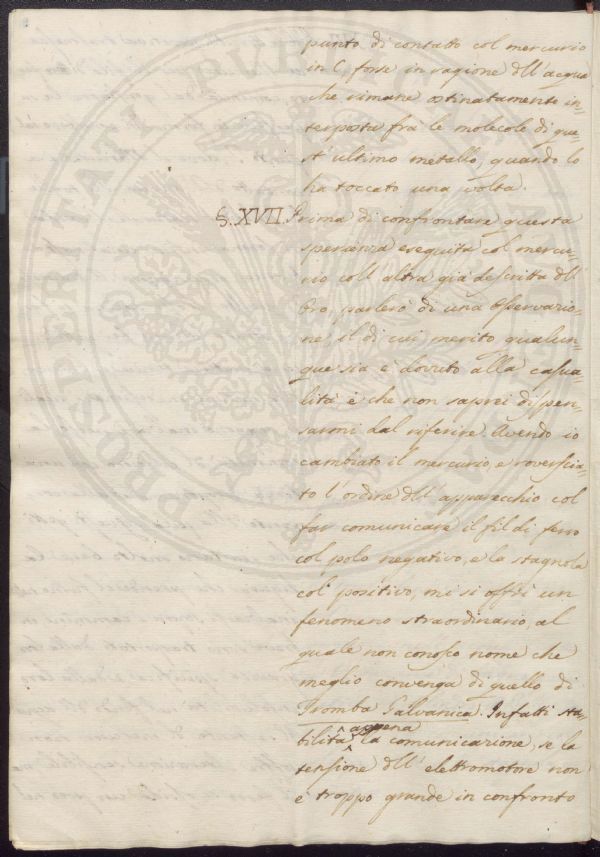 punto di contatto col mercurio
in C, forse in ragione dell'acqua
che rimane ostinatamente in-
terposta frà le molecole di que-
st'ultimo metallo, quando lo
ha toccato una volta.
§. XVII. Prima di confrontare questa
sperienza eseguita col mercu-
rio coll'altra già descritta dll'
Oro, parlerò di una Osservazio-
ne, il di cui merito, qualun-
que sia è dovuto alla casua-
lità, e che non saprei dispen-
sarmi dal riferire. Avendo io
cambiato il mercurio, e roverscia-
to l'ordine dll'apparecchio col
far comunicare il fil di ferro
col polo negativo, e la stagnola
col positivo, mi si offrì un
fenomeno straordinario, al
quale non conosco nome che
meglio convenga di quello di
Tromba Galvanica. Infatti sta-
bilita appena la comunicazione, se la
tensione dll'elettromotore non
è troppo grande in confronto
PROSPERITATI PUBLICAE